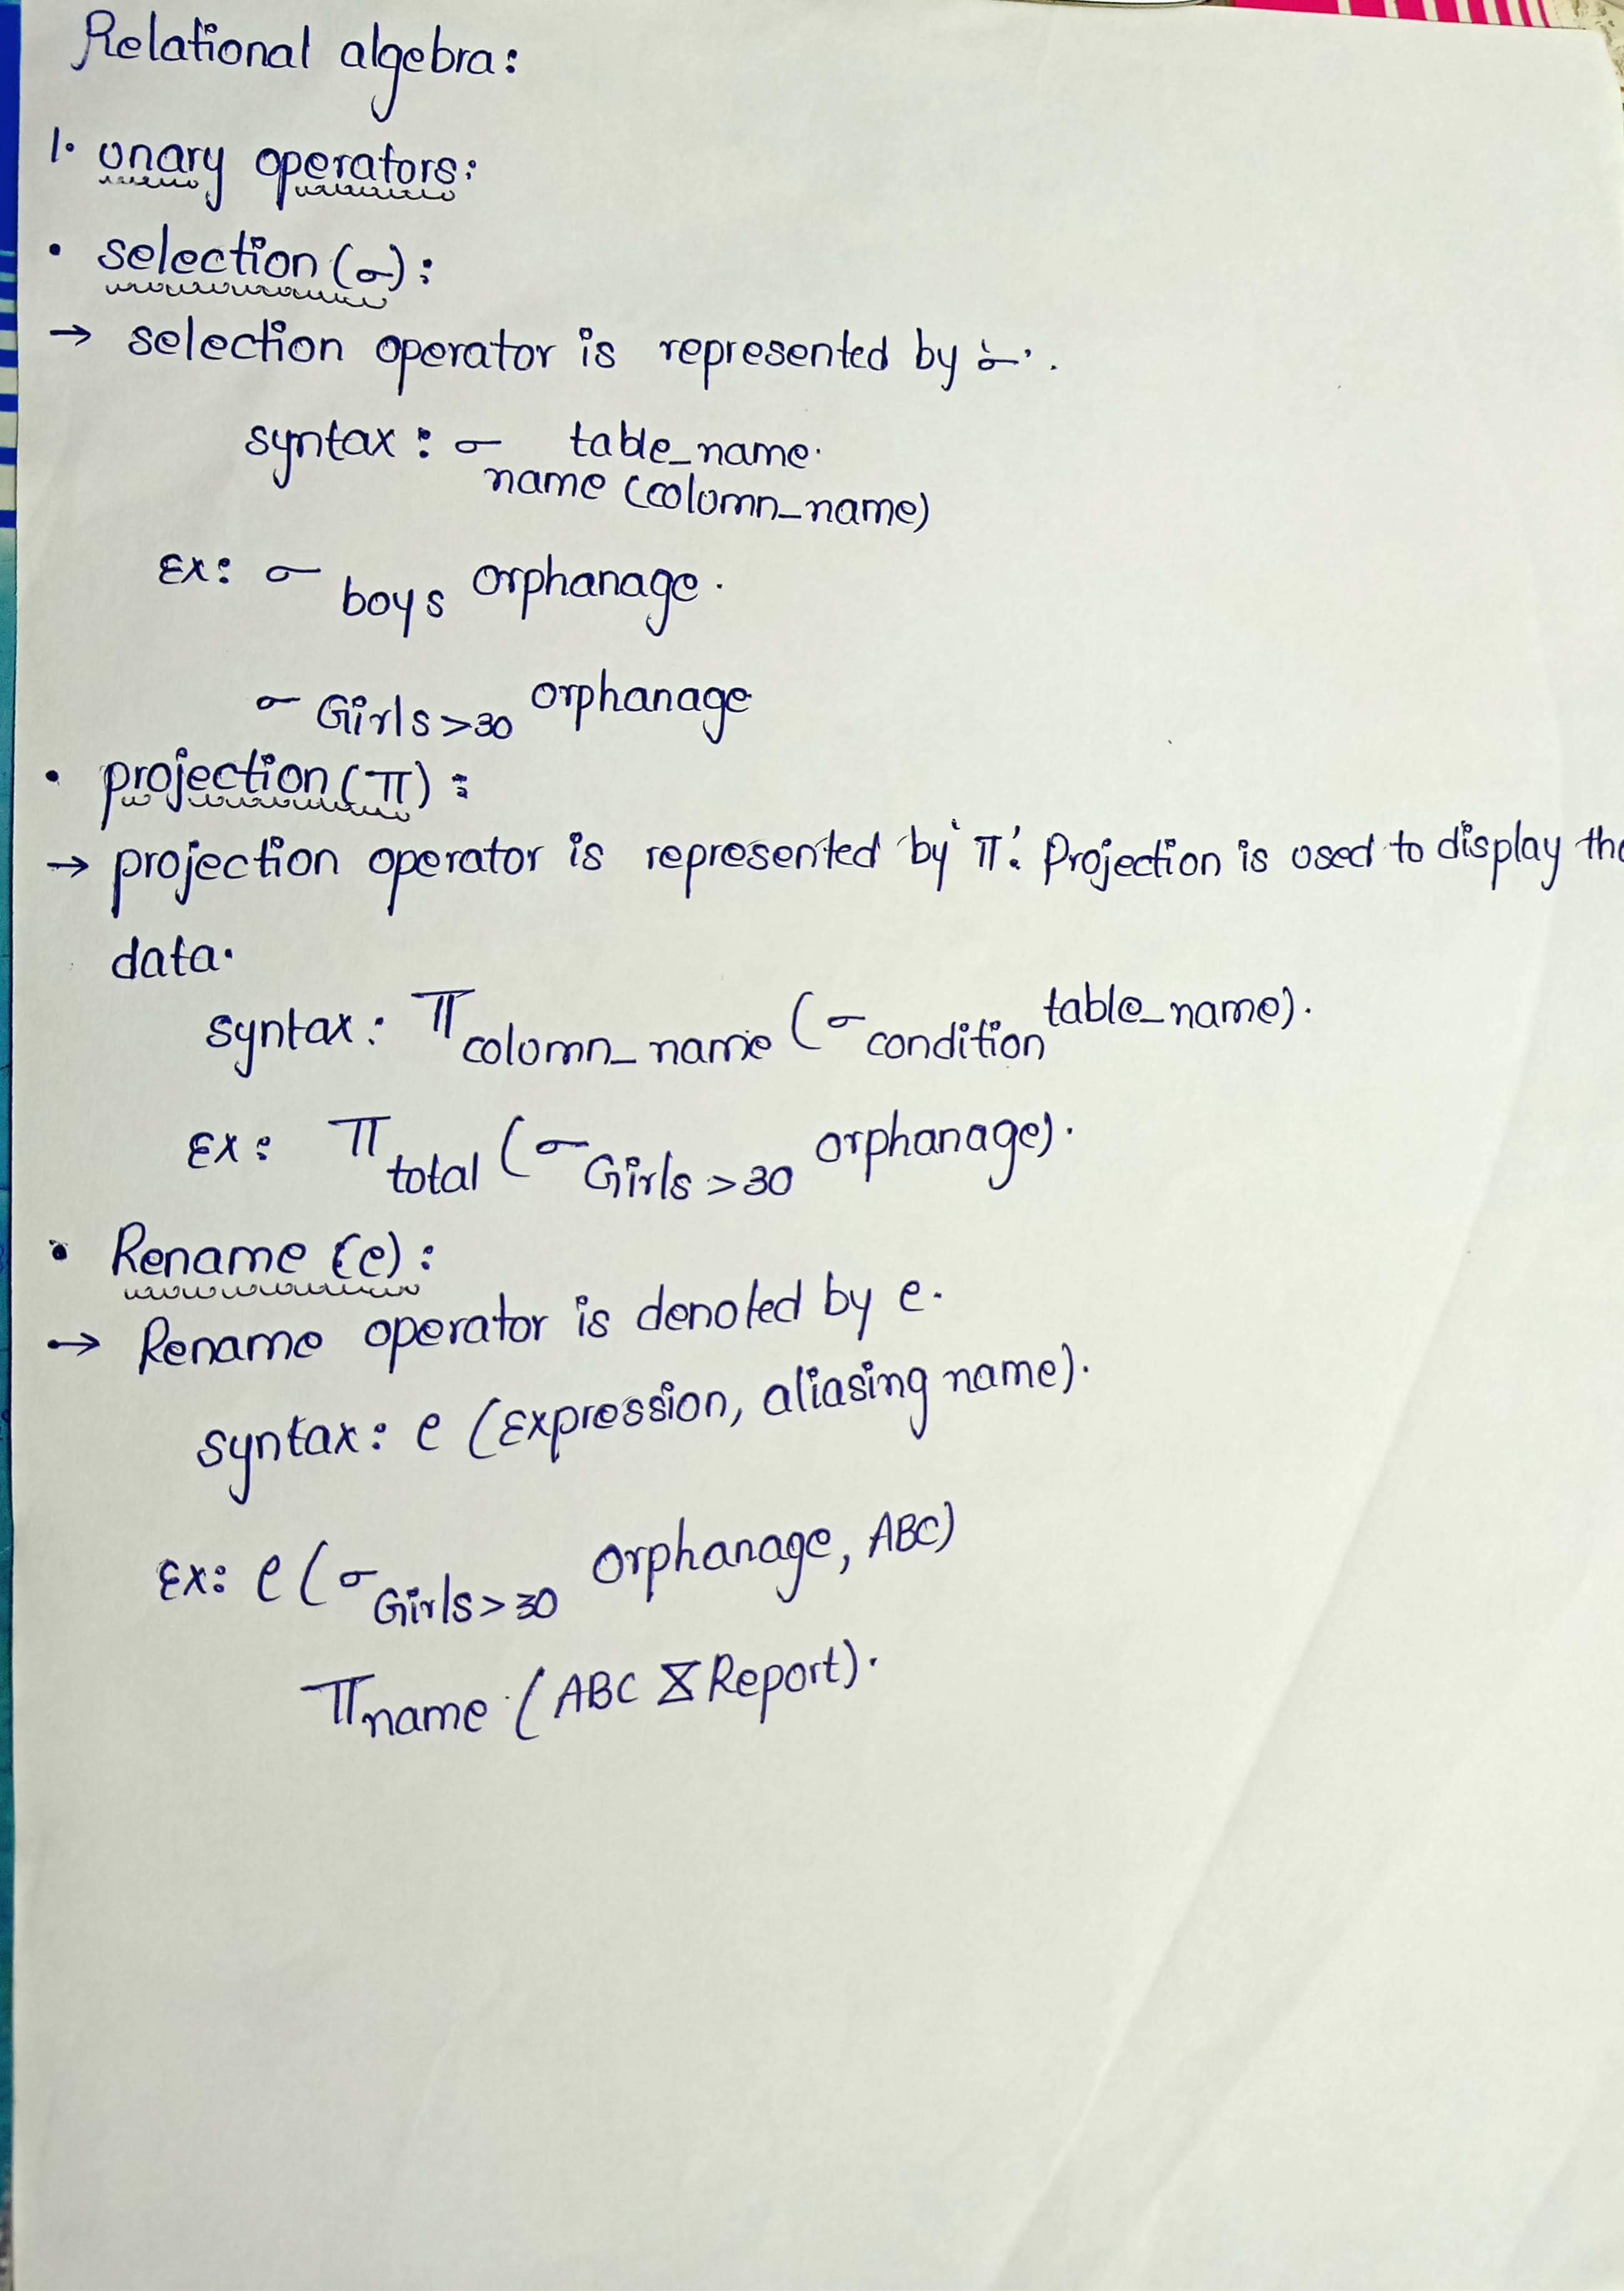 Relational algebra:
1. unary operators:
• selection (σ):
→ selection operator is represented by 'σ'.
syntax: σ name (column_name) table_name.
Ex: σ boys orphanage.
σ Girls>30 orphanage
• projection (π):
→ projection operator is represented by 'π'. Projection is used to display the
data.
syntax: π column_name (σ condition table_name).
Ex: π total (σ Girls>30 orphanage).
• Rename (e):
→ Rename operator is denoted by e.
syntax: e (Expression, aliasing name).
Ex: e (σ Girls>30 orphanage, ABC)
π name (ABC ⋈ Report).